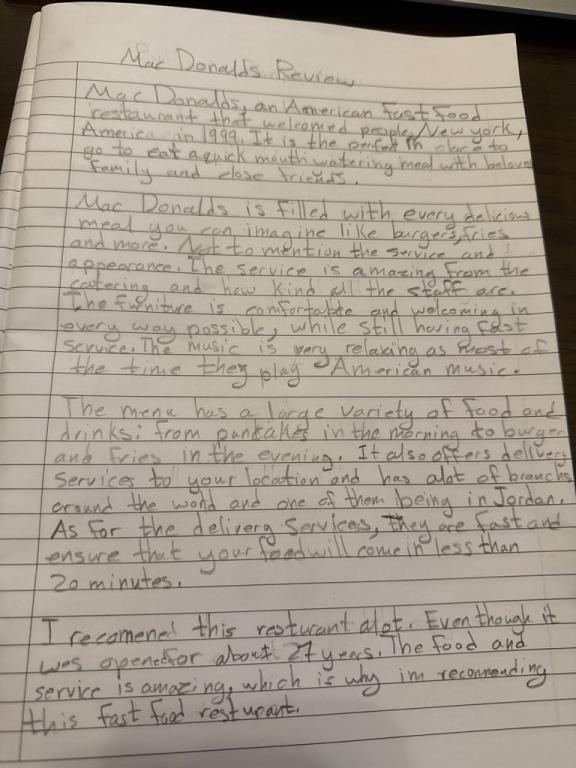 Mac Donalds Review
Mac Donalds, an American fast food
restaurant that welcomed people, New york,
America in 1999. It is the perfect place to
go to eat a quick mouth watering meal with belove
family and close friends.
Mac Donalds is filled with every delicious
meal you can imagine like burgers, fries
and more. Not to mention the service and
appearance. The service is amazing from the
catering and how kind all the staff are.
The furniture is comfortable and welcoming in
every way possible, while still having fast
service. The music is very relaxing as most of
the time they play American music.
The menu has a large variety of food and
drinks: from pankakes in the morning to burger
and fries in the evening. It also offers delivery
services to your location and has alot of branchs
around the world and one of them being in Jordan.
As for the delivery services, they are fast and
ensure that your food will come in less than
20 minutes.
I recomend this resturant alot. Even though it
was opened for about 27 years. The food and
service is amazing, which is why im recommending
this fast food resturant.